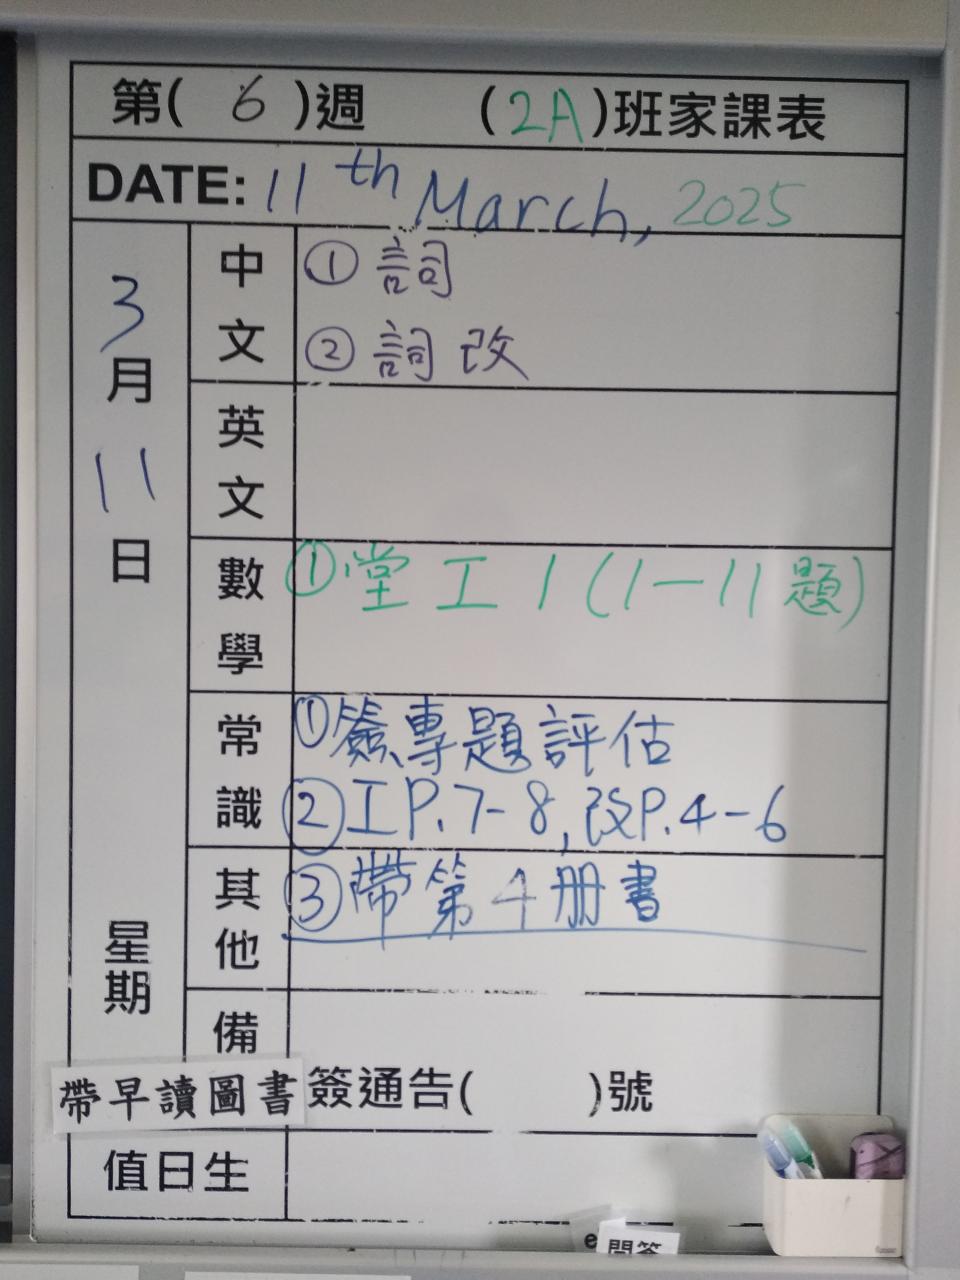 第( 6 )週 (2A)班家課表
DATE: 11th March, 2025
3月11日
星期
中文
① 詞
② 詞改
英文
數學
① 堂工1(1-11題)
常識
① 簽專題評估
② 工P.7-8, 改P.4-6
其他
③ 帶第4册書
備
帶早讀圖書
簽通告( )號
值日生
e
問答